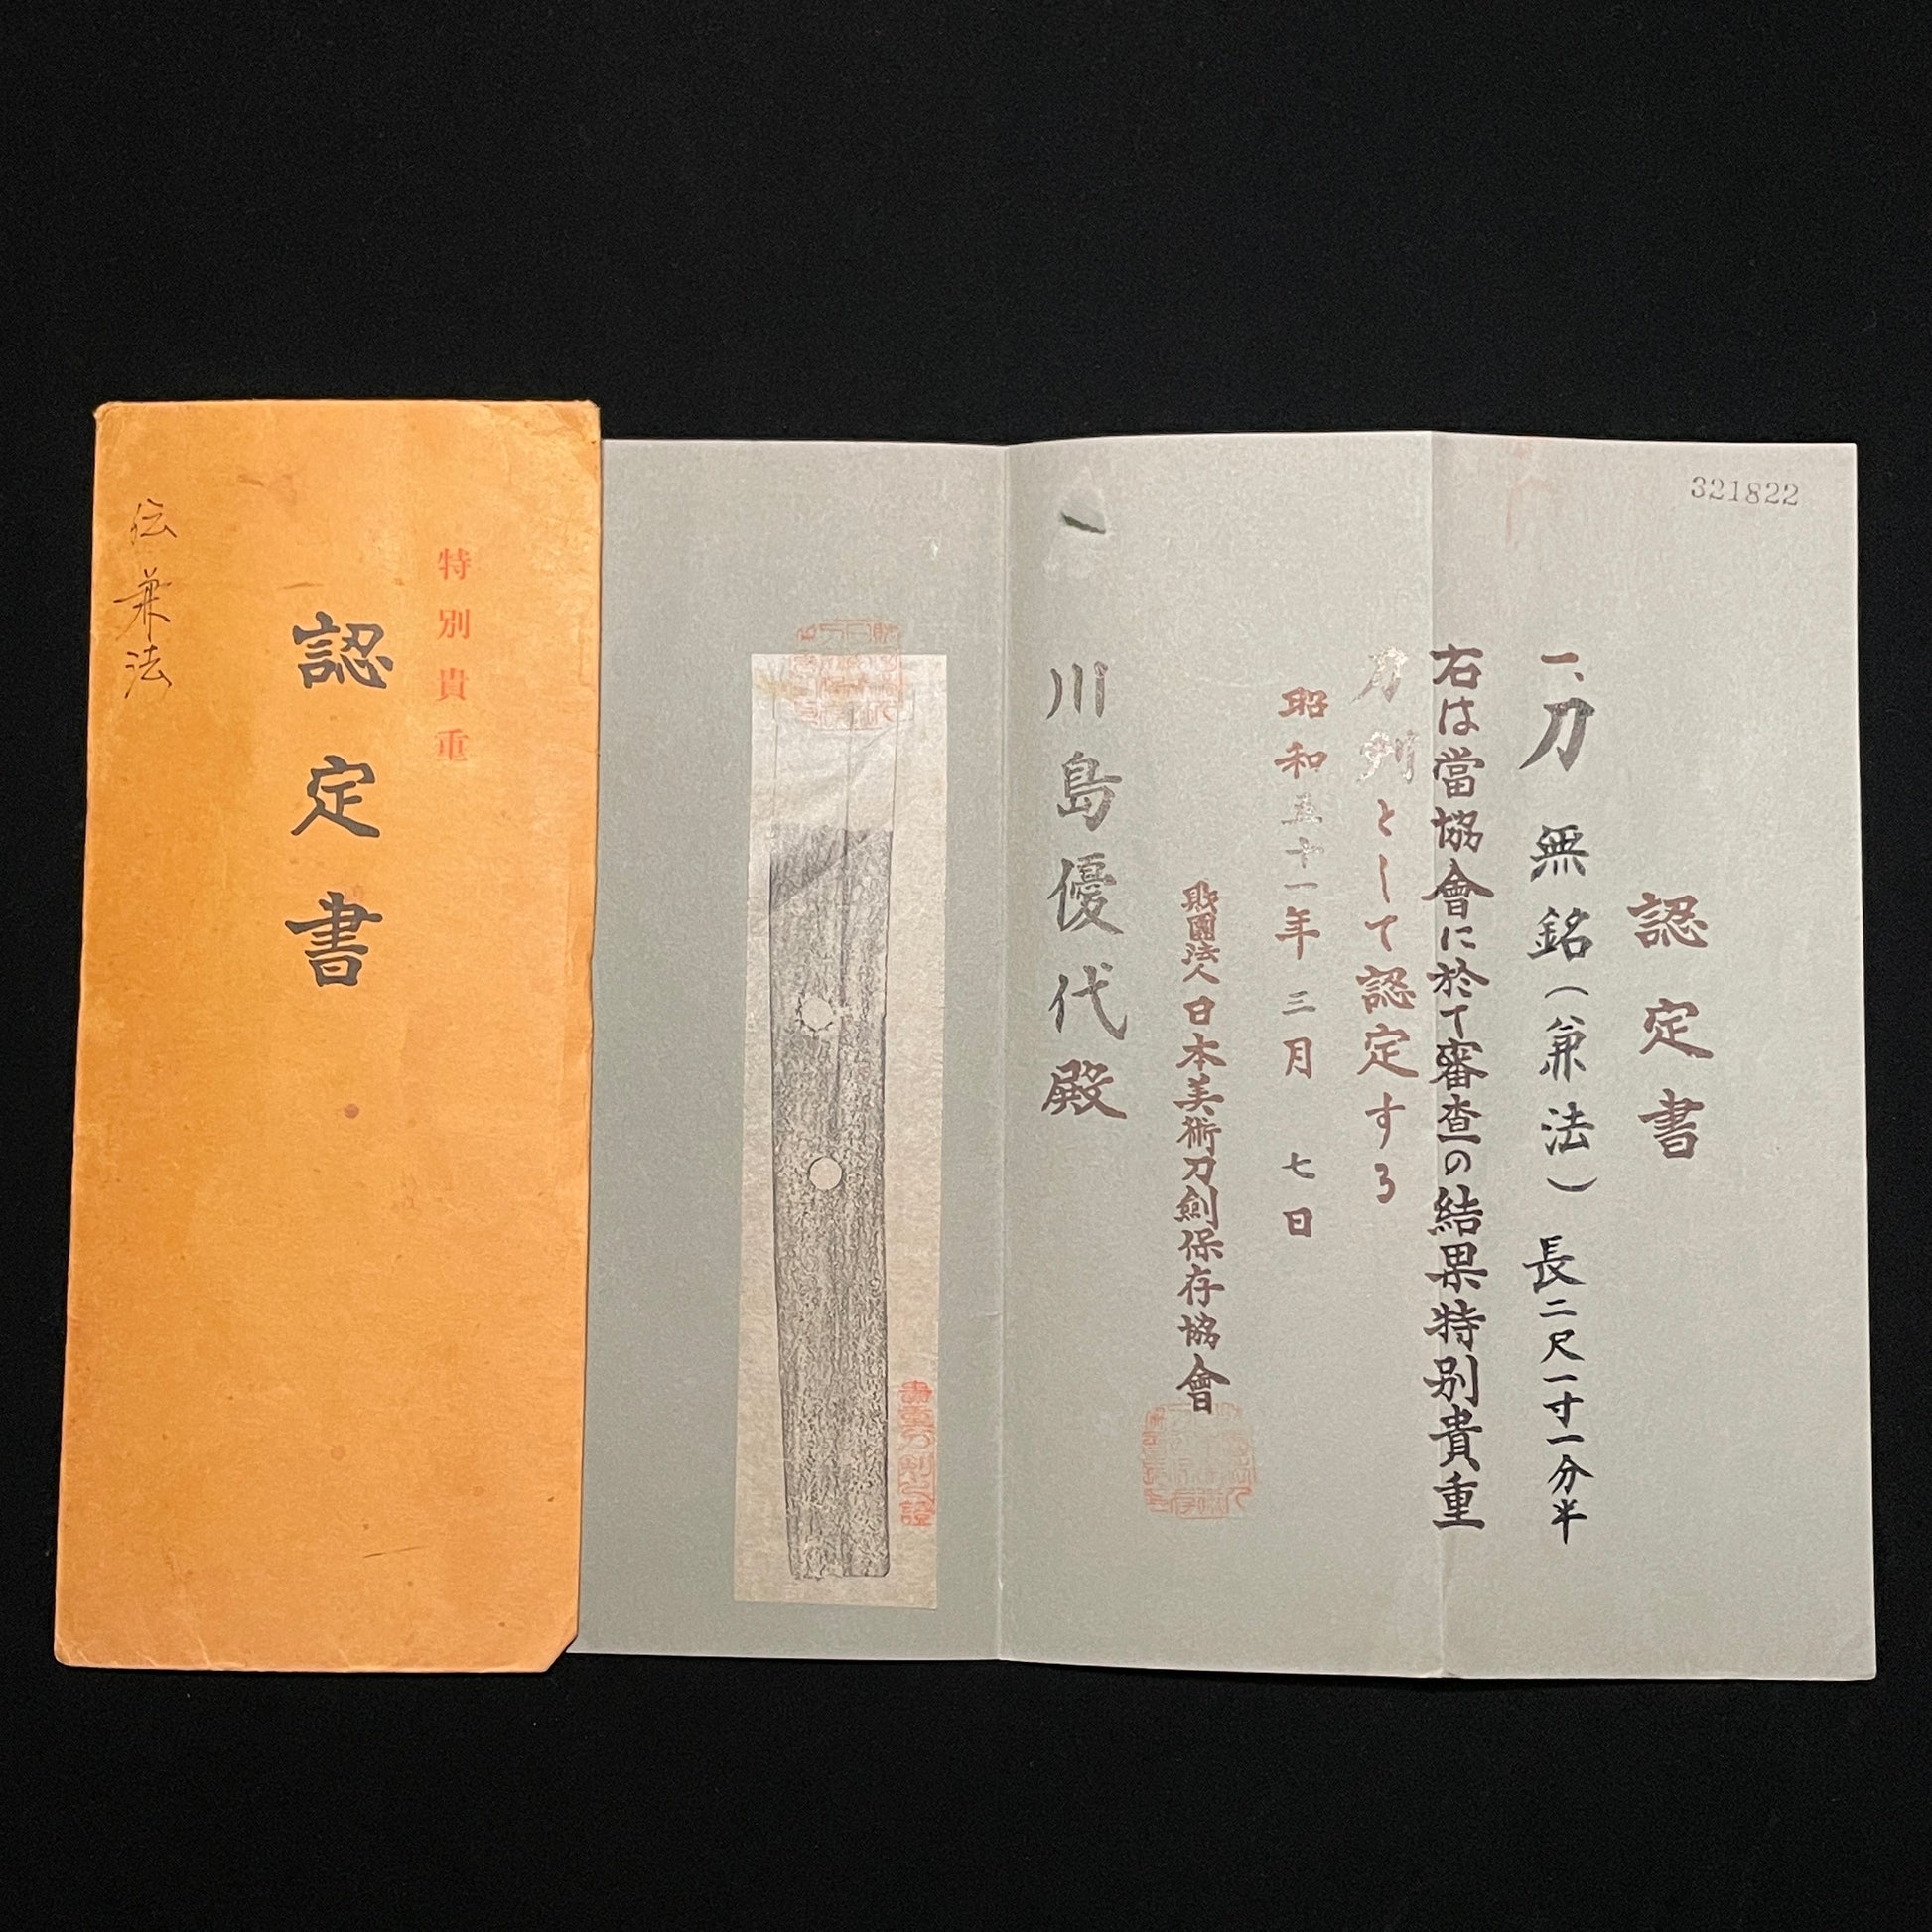 321822
認定書
一、刀 無銘(兼法) 長二尺一寸一分半
右は當協會に於て審査の結果特別貴重
刀剣として認定する
昭和五十一年三月七日
財團法人日本美術刀劍保存協會
川島優代殿
貴重刀剣之證
特別貴重
認定書
伝兼法